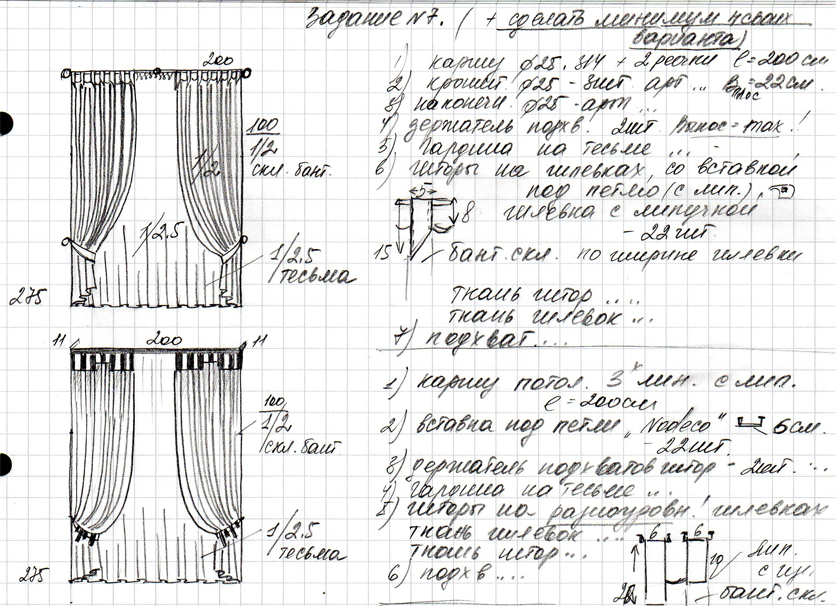 Задание №7. ( + сделать минимум 4 своих
варианта)
1) карниз ф25. 314 + 2 рейки l = 200 см
2) кроншт. ф25 - 3шт. арт .. = 22 см.
3) наконечн. ф25 - арт ...
4) держатель подхв. 2шт. Вынос = max!
5) Гардина на тесьме ... -
6) шторы на шлевках, со вставкой
под петлю (с лип.),
шлевка с липучкой
- 22 шт.
бант. скл. по ширине шлевки
ткань штор ....
ткань шлевок ...
7) подхват ....
200
100
1/2
скл. бант.
1/2
1/2.5
1/2.5
тесьма
275
5
8
15
11
200
11
100
1/2
скл. бант
1/2.5
тесьма
275
1) карниз потол. 3х лин. с лип.
l = 200 см
2) вставка под петли "Nodeco" 6 см.
- 22 шт.
3) держатель подхватов штор - 2 шт. ...
4) гардина на тесьме ...
5) шторы на разноуровн.! шлевках
ткань шлевок ....
ткань штор ...
6) подхв ....
6
6
10
лип.
бант. скл.